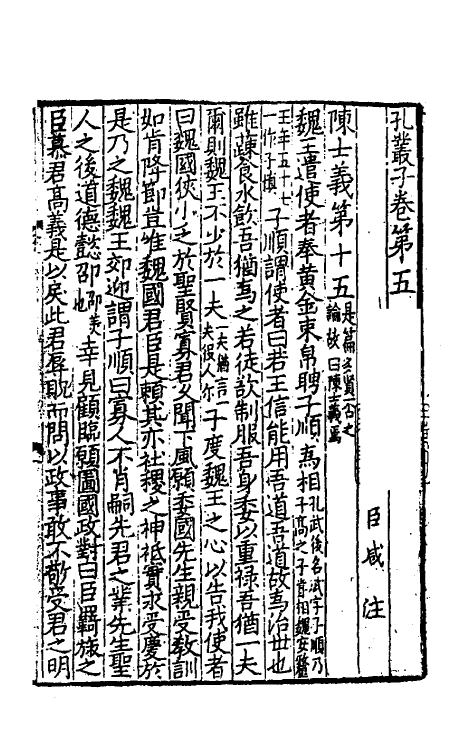 孔叢子卷第五
臣咸注
陳士義第十五是篇多賢否之論故曰陳士義焉
魏王遣使者奉黃金束帛聘子順為相孔武後名斌字子順乃子高之子嘗相魏安釐
王年五十七一作子慎子順謂使者曰若王信能用吾道吾道故為治世也
雖蔬食水飲吾猶為之若徒欲制服吾身委以重禄吾猶一夫
爾則魏王不少於一夫一夫猶言一夫役人尒子度魏王之心以告我使者
曰魏國狹小乏於聖賢寡君久聞下風願委國先生親受教訓
如肯降節豈唯魏國君臣是賴其亦社稷之神祗實永受慶於
是乃之魏魏王郊迎謂子順曰寡人不肖嗣先君之業先生聖
人之後道德懿邵邵美也幸見顧臨願圖國政對曰臣羇旅之
臣慕君髙義是以戾此君辱貺而問以政事敢不敬受君之明